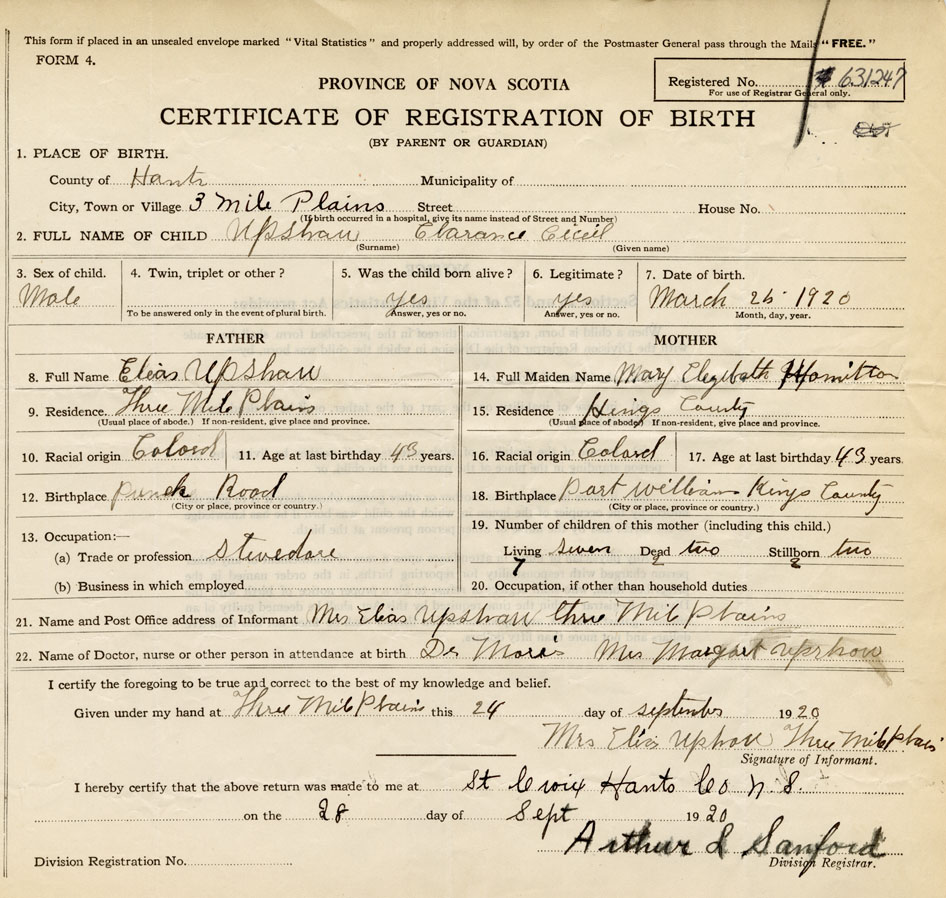 This form if placed in an unsealed envelope marked "Vital Statistics" and properly addressed will, by order of the Postmaster General pass through the Mails "FREE."
FORM 4.
PROVINCE OF NOVA SCOTIA
Registered No. 631247
For use of Registrar General only.
CERTIFICATE OF REGISTRATION OF BIRTH
(BY PARENT OR GUARDIAN)
1. PLACE OF BIRTH.
County of Hants Municipality of
City, Town or Village 3 Mile Plains Street House No.
(If birth occurred in a hospital, give its name instead of Street and Number)
2. FULL NAME OF CHILD Upshaw Clarance Cicil
(Surname) (Given name)
3. Sex of child. 4. Twin, triplet or other? 5. Was the child born alive? 6. Legitimate? 7. Date of birth.
Male yes yes March 26 1920
To be answered only in the event of plural birth. Answer, yes or no. Answer, yes or no. Month, day, year.
FATHER
8. Full Name Elias Upshaw
9. Residence. Three Mile Plains
(Usual place of abode.) If non-resident, give place and province.
10. Racial origin Colord 11. Age at last birthday 43 years.
12. Birthplace Panuk Road
(City or place, province or country.)
13. Occupation:—
(a) Trade or profession Stevedore
(b) Business in which employed
MOTHER
14. Full Maiden Name Mary Elizabeth Hamilton
15. Residence Kings County
(Usual place of abode) If non-resident, give place and province.
16. Racial origin Colard 17. Age at last birthday 43 years.
18. Birthplace Port William Kings County
(City or place, province or country.)
19. Number of children of this mother (including this child.)
Living seven Dead two Stillborn two
7 2 2
20. Occupation, if other than household duties
21. Name and Post Office address of Informant Mrs Elias Upshaw three Mile Plains
22. Name of Doctor, nurse or other person in attendance at birth Dr Morris Mrs Margart Upshow
I certify the foregoing to be true and correct to the best of my knowledge and belief.
Given under my hand at Three Mile Plains this 24 day of september 1920
Mrs Elias Upshaw Three Mile Plais
Signature of Informant.
I hereby certify that the above return was made to me at St Croix Hants Co N.S.
on the 28 day of Sept 1920
Arthur L Sanford
Division Registration No. Division Registrar.